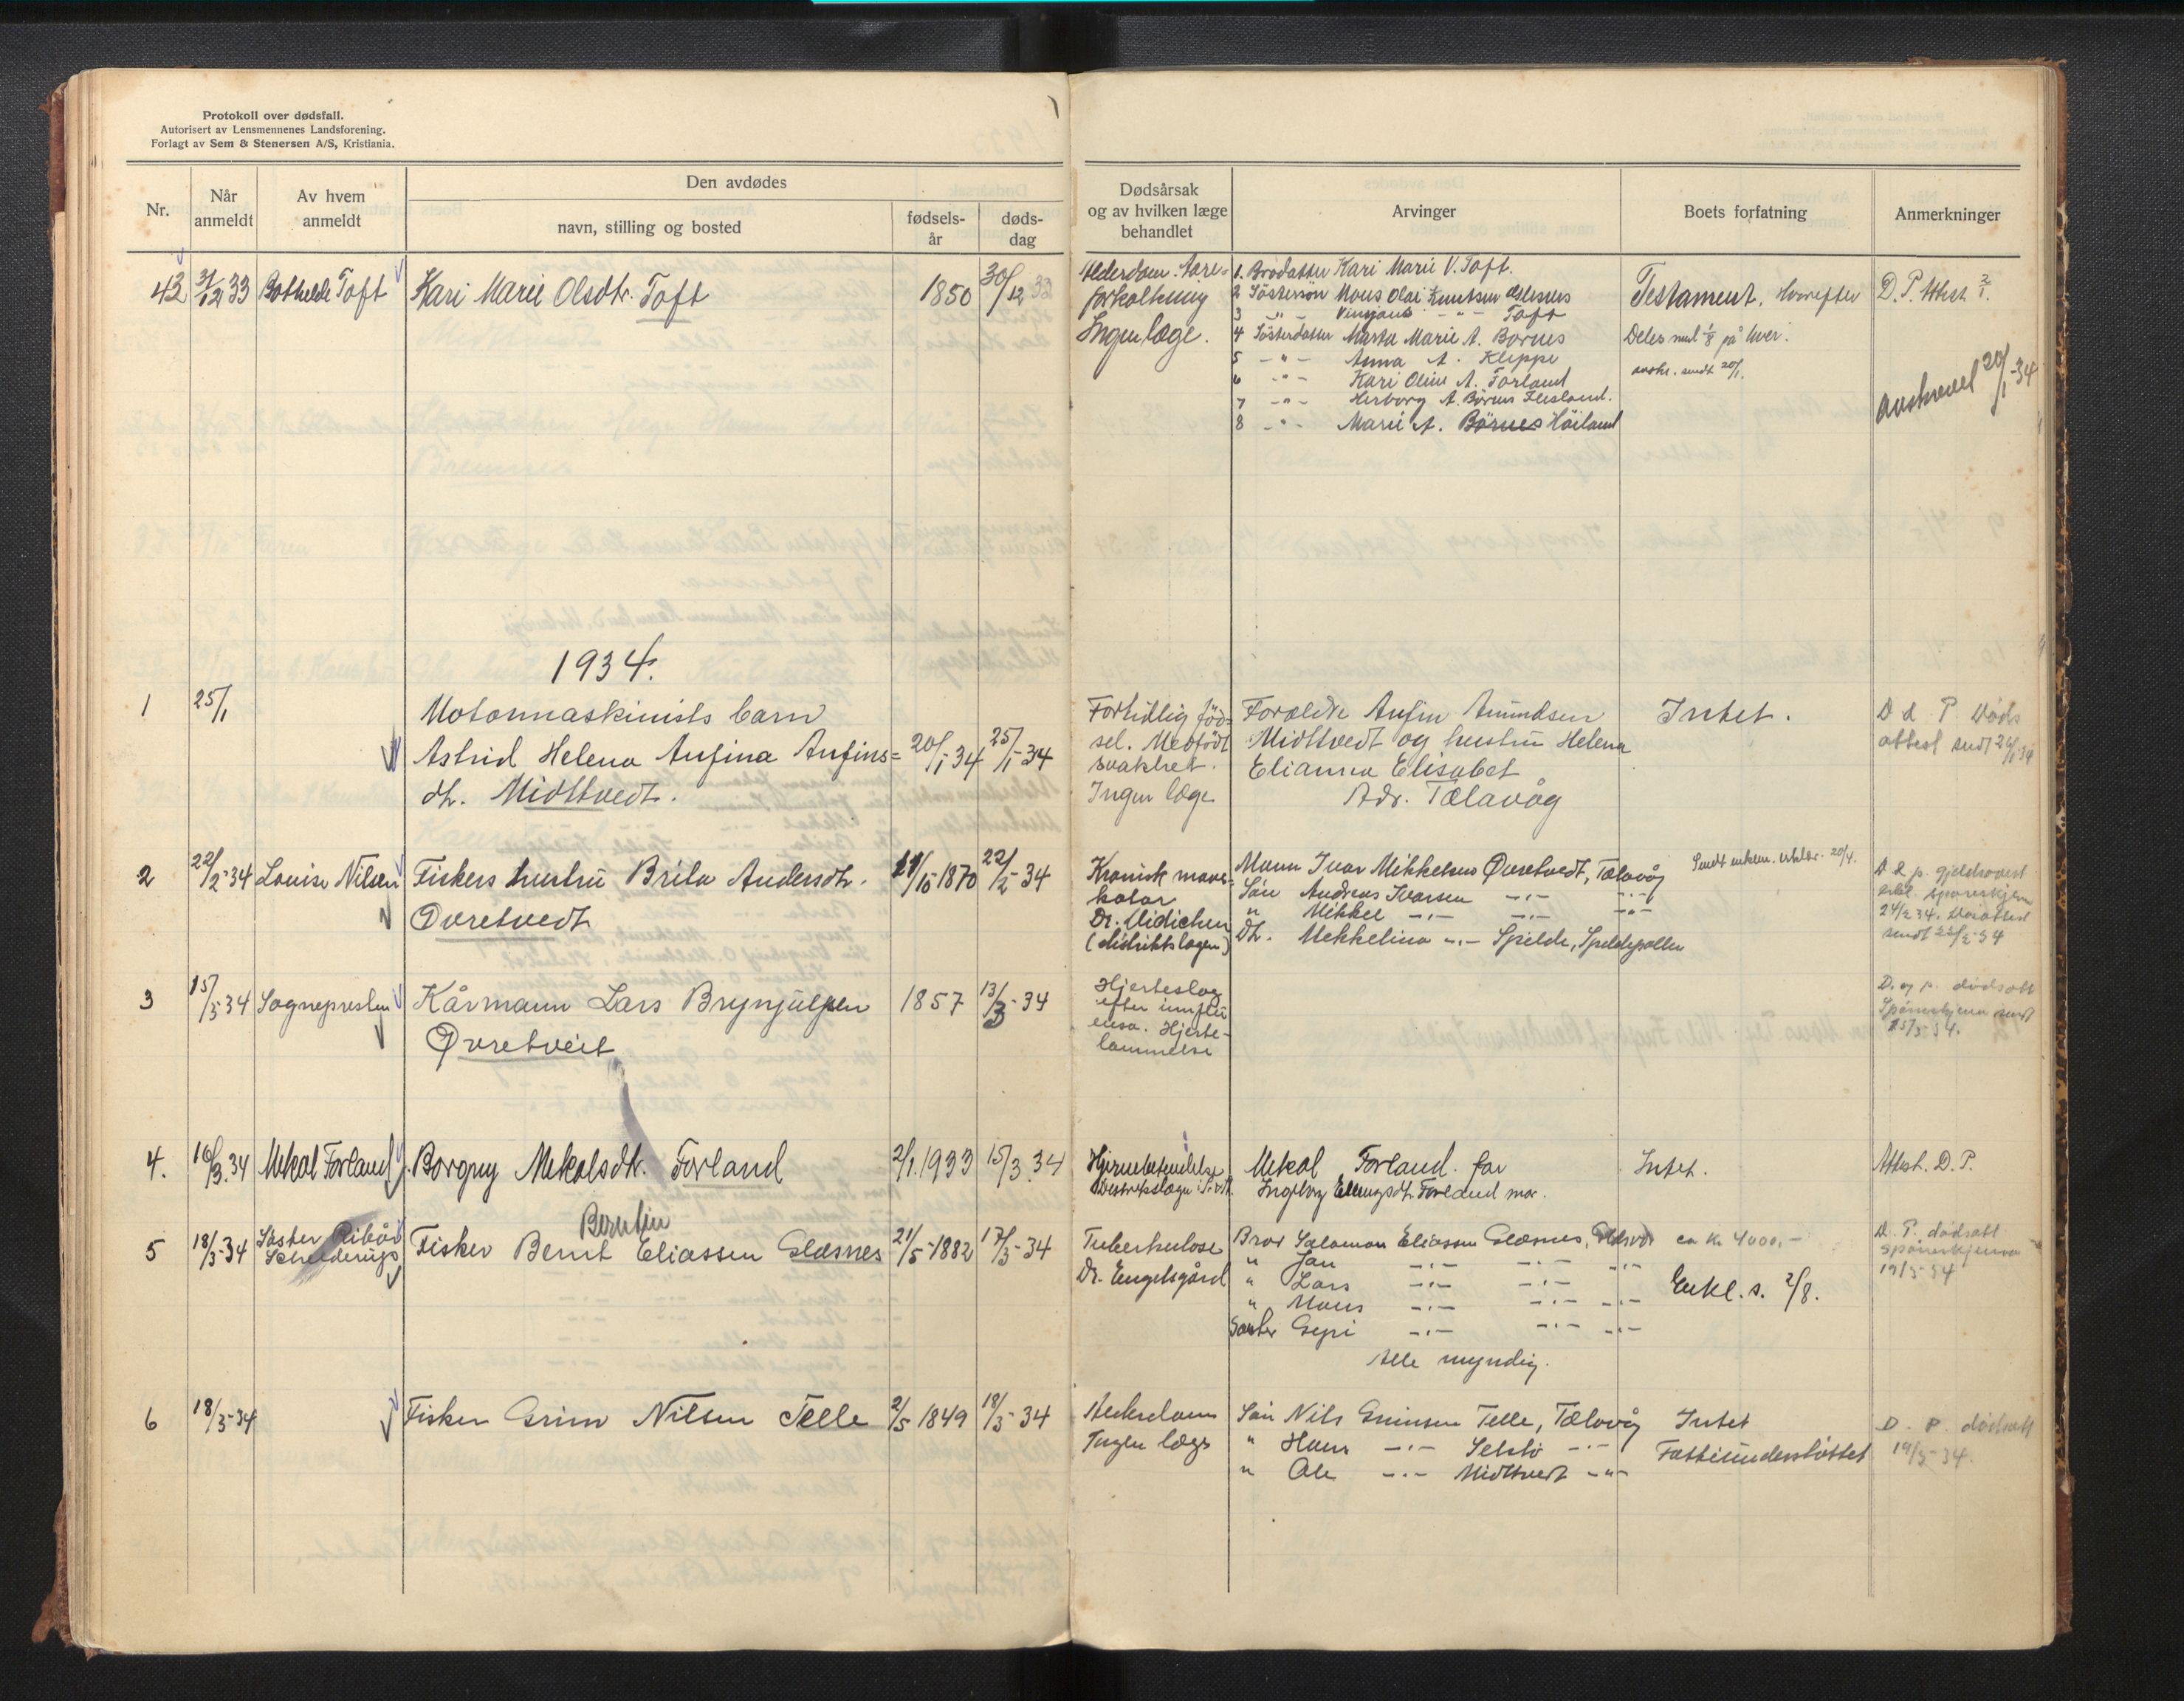 Protokoll over dødsfall.
Autorisert av Lensmennenes Landsforening.
Forlagt av Sem & Stenersen A/S, Kristiania.
Nr.
Når anmeldt
Av hvem anmeldt
Den avdødes
navn, stilling og bosted
fødsels-år
døds-dag
Dødsårsak og av hvilken læge behandlet
Arvinger
Boets forfatning
Anmerkninger
43 31/12 33 Bothilde Toft Kari Marie Olsdtr. Toft 1850 30/12 33
Alderdom. Åre-
forkalkning
Ingen læge.
1. Brodatter Kari Marie V. Toft.
2 Søstersøn Mons Olai Knutsen
3 -"- -"- Toft
4 Søsterdatter Marta Marie A. Børnes
5 -"- Anna A. Kleppe
6 -"- Kari Oline A. Forland
7 -"- Herborg A. Børnes Flesland.
8 -"- Marie A. Børnes Høiland
Testament. Hvorefter
Deles med 1/8 på hver.
sendt 20/1.
D.P. Attest 2/1.
Avskrevet 20/1-34
1934.
1 25/1
Motormaskinists barn
Astrid Helena Anfina Anfins=
dtr. Midttvedt.
20/1-34 25/1-34
Fortidlig fød=
sel. Medfødt
svakhet.
Ingen læge
Forældre Anfin Amundsen
Midttvedt og hustru Helena
Elianna Elisabet
Adr. Tælavåg
Intet.
D d. P. Døds
attest sendt 26/1-34
2 22/2-34 Louise Nilsen Fiskers hustru Brita Andersdtr.
Øvretvedt
11/10 1870 22/2-34
Kronisk mave=
katar
Dr. Didichen
(distriktslægen)
Mann Ivar Mikkelsen Øvretvedt, Tælavåg
Søn Andreas Ivarsen -"- -"-
" Mikkel -"- -"- -"-
Dtr. Mikkelina -"- Spilde, Spildepollen
Sendt enkem. erklær. 20/4.
D d p. gjeldsovers
erkl. spørreskjem
24/2 34. Dødsattest
sendt 22/2-34
3 15/3-34 Sognepresten Kårmann Lars Brynjulfsen
Øvretveit
1857 13/3-34
Hjerteslag
efter influ
ensa. Hjerte-
lammelse
D. og p. dødsatt
Spørreskjema sendt
15/3-34.
4. 16/3.34 Mikal Forland Borgny Mikalsdtr. Forland 2/1.1933 15/3.34
Hjernebetendelse
Mikal Forland. far
Ingeborg Ellingsdtr. Forland mor.
Intet.
Attest. D.P.
5 18/3-34 Søster
Berntin
Fisker Bernt Eliassen Glesnes 21/5-1882 17/3-34
Tuberkulose
Dr. Engelsgård
Bror Salomon Eliassen Glesnes, ca kr 4000,-
" Jan -"- -"- -"-
" Lars -"- -"-
" Mons -"- -"- -"-
Søster Gyri -"- -"- -"-
Alle myndig.
Erkl. s. 2/8.
D.P. dødsatt
spørreskjema
19/3-34
6 18/3-34 Fisker Grim Nilsen Telle 2/5 1849 18/3-34
Alderdom
Ingen læge
Søn Nils Grimsen Telle, Tælavåg
" Hans -"- Selstø -"-
" Ole -"- Midttvedt -"-
Intet
Fattigunderstøttet
D. P. dødsatt
19/3-34.